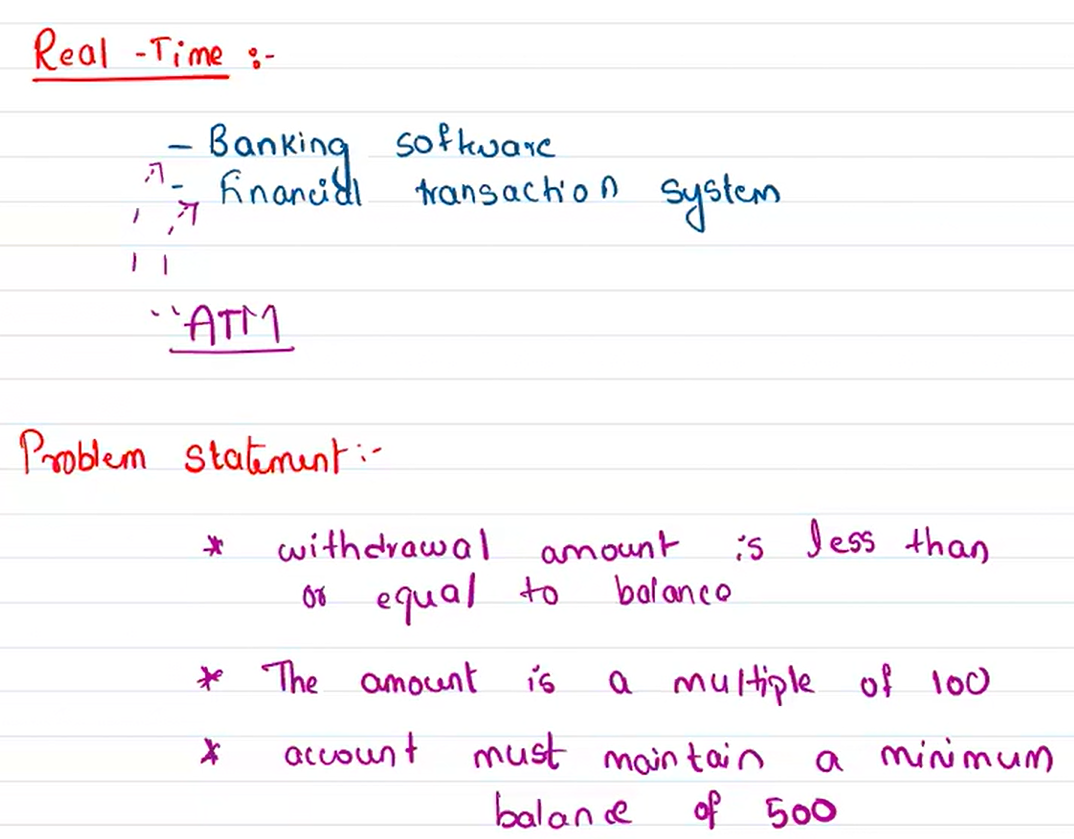 Real -Time :-
- Banking software
- financial transaction system
ATM
Problem statement :-
* withdrawal amount is less than
or equal to balance
* The amount is a multiple of 100
* account must maintain a minimum
balance of 500